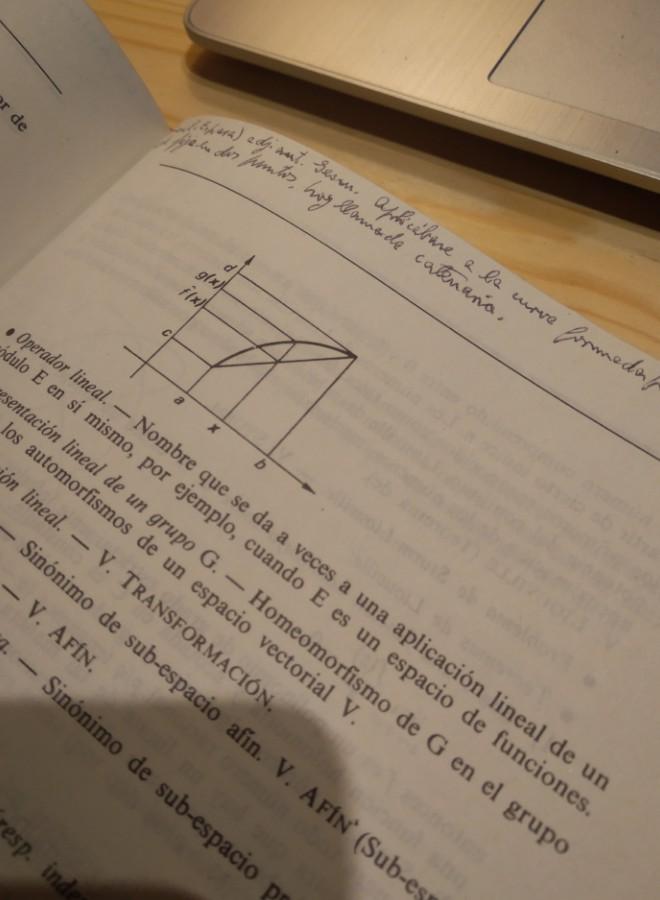 or de
España) adj. ant. Geom. Aplicábase a la curva formada p
fija en dos puntos, hoy llamada catenaria.
d
g(x)
f(x)
c
a
x
b
• Operador lineal. — Nombre que se da a veces a una aplicación lineal de un
ódulo E en sí mismo, por ejemplo, cuando E es un espacio de funciones.
esentación lineal de un grupo G. — Homeomorfismo de G en el grupo
los automorfismos de un espacio vectorial V.
ión lineal. — V. TRANSFORMACIÓN.
— Sinónimo de sub-espacio afín. V. AFÍN (Sub-esp
— V. AFÍN.
a. — Sinónimo de sub-espacio pr
(resp. inde